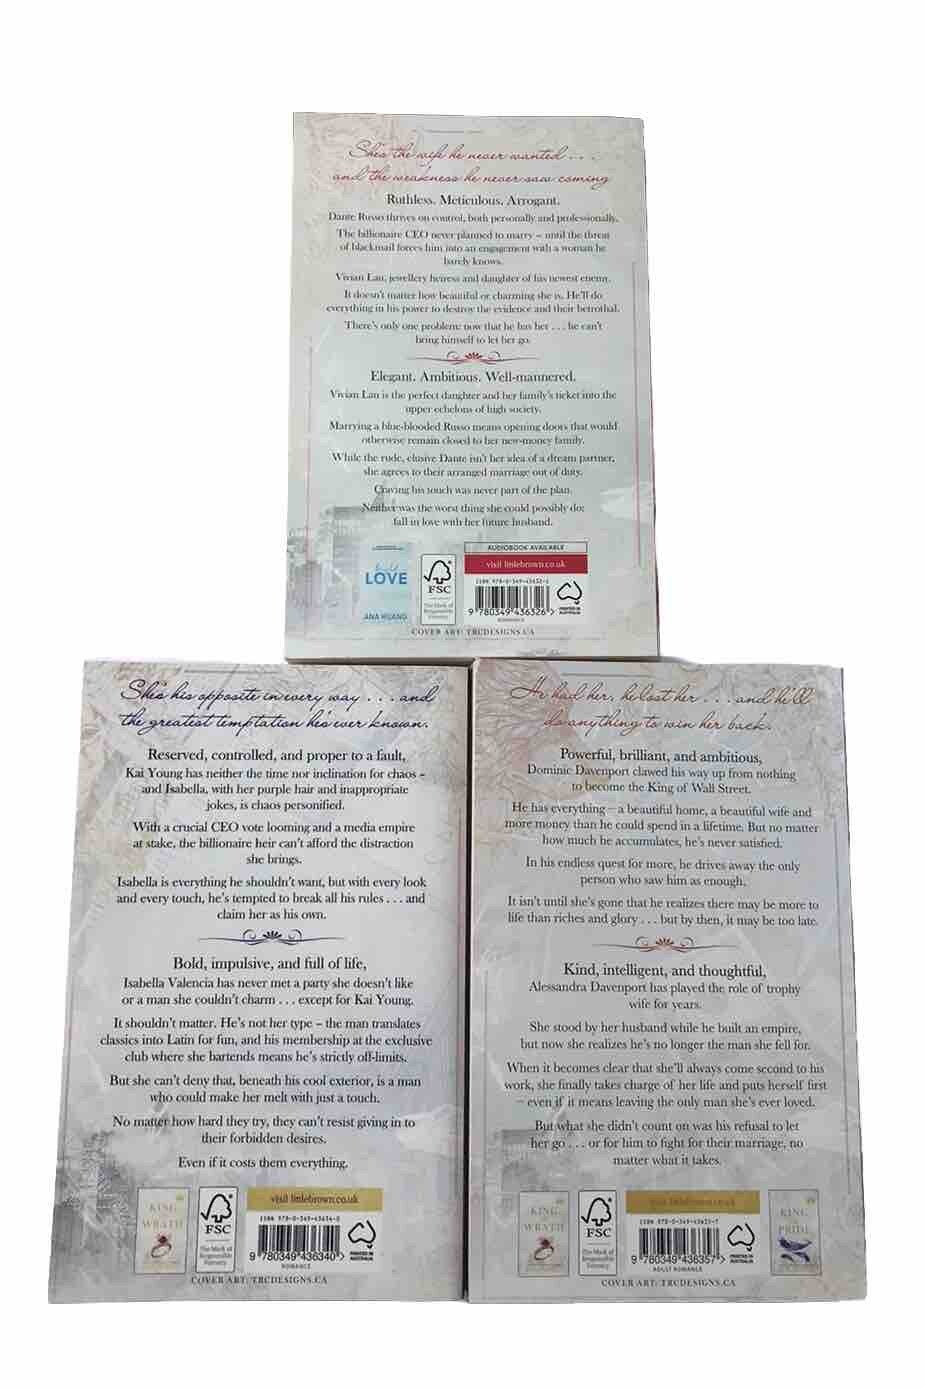 She's the wife he never wanted . . .
and the weakness he never saw coming
Ruthless. Meticulous. Arrogant.
Dante Russo thrives on control, both personally and professionally.
The billionaire CEO never planned to marry – until the threat
of blackmail forces him into an engagement with a woman he
barely knows.
Vivian Lau, jewellery heiress and daughter of his newest enemy.
It doesn't matter how beautiful or charming she is. He'll do
everything in his power to destroy the evidence and their betrothal.
There's only one problem: now that he has her . . . he can't
bring himself to let her go.
Elegant. Ambitious. Well-mannered.
Vivian Lau is the perfect daughter and her family's ticket into the
upper echelons of high society.
Marrying a blue-blooded Russo means opening doors that would
otherwise remain closed to her new-money family.
While the rude, elusive Dante isn't her idea of a dream partner,
she agrees to their arranged marriage out of duty.
Craving his touch was never part of the plan.
Neither was the worst thing she could possibly do:
fall in love with her future husband.
LOVE
ANA HUANG
FSC
The Mark of
Responsible
Forestry
AUDIOBOOK AVAILABLE
visit littlebrown.co.uk
ISBN 978-0-349-43632-6
9 780349 436326 >
ROMANCE
PRINTED IN
AUSTRALIA
COVER ART: TRCDESIGNS.CA
She's his opposite in every way . . . and
the greatest temptation he's ever known.
Reserved, controlled, and proper to a fault,
Kai Young has neither the time nor inclination for chaos –
and Isabella, with her purple hair and inappropriate
jokes, is chaos personified.
With a crucial CEO vote looming and a media empire
at stake, the billionaire heir can't afford the distraction
she brings.
Isabella is everything he shouldn't want, but with every look
and every touch, he's tempted to break all his rules . . . and
claim her as his own.
Bold, impulsive, and full of life,
Isabella Valencia has never met a party she doesn't like
or a man she couldn't charm . . . except for Kai Young.
It shouldn't matter. He's not her type – the man translates
classics into Latin for fun, and his membership at the exclusive
club where she bartends means he's strictly off-limits.
But she can't deny that, beneath his cool exterior, is a man
who could make her melt with just a touch.
No matter how hard they try, they can't resist giving in to
their forbidden desires.
Even if it costs them everything.
KING
OF
WRATH
FSC
The Mark of
Responsible
Forestry
visit littlebrown.co.uk
ISBN 978-0-349-43634-0
9 780349 436340 >
ROMANCE
PRINTED IN
AUSTRALIA
COVER ART: TRCDESIGNS.CA
He had her, he lost her . . . and he'll
do anything to win her back.
Powerful, brilliant, and ambitious,
Dominic Davenport clawed his way up from nothing
to become the King of Wall Street.
He has everything – a beautiful home, a beautiful wife and
more money than he could spend in a lifetime. But no matter
how much he accumulates, he's never satisfied.
In his endless quest for more, he drives away the only
person who saw him as enough.
It isn't until she's gone that he realizes there may be more to
life than riches and glory . . . but by then, it may be too late.
Kind, intelligent, and thoughtful,
Alessandra Davenport has played the role of trophy
wife for years.
She stood by her husband while he built an empire,
but now she realizes he's no longer the man she fell for.
When it becomes clear that she'll always come second to his
work, she finally takes charge of her life and puts herself first
– even if it means leaving the only man she's ever loved.
But what she didn't count on was his refusal to let
her go . . . or for him to fight for their marriage, no
matter what it takes.
KING
OF
WRATH
FSC
The Mark of
Responsible
Forestry
visit littlebrown.co.uk
ISBN 978-0-349-43635-7
9 780349 436357 >
ADULT ROMANCE
PRINTED IN
AUSTRALIA
KING
OF
PRIDE
COVER ART: TRCDESIGNS.CA